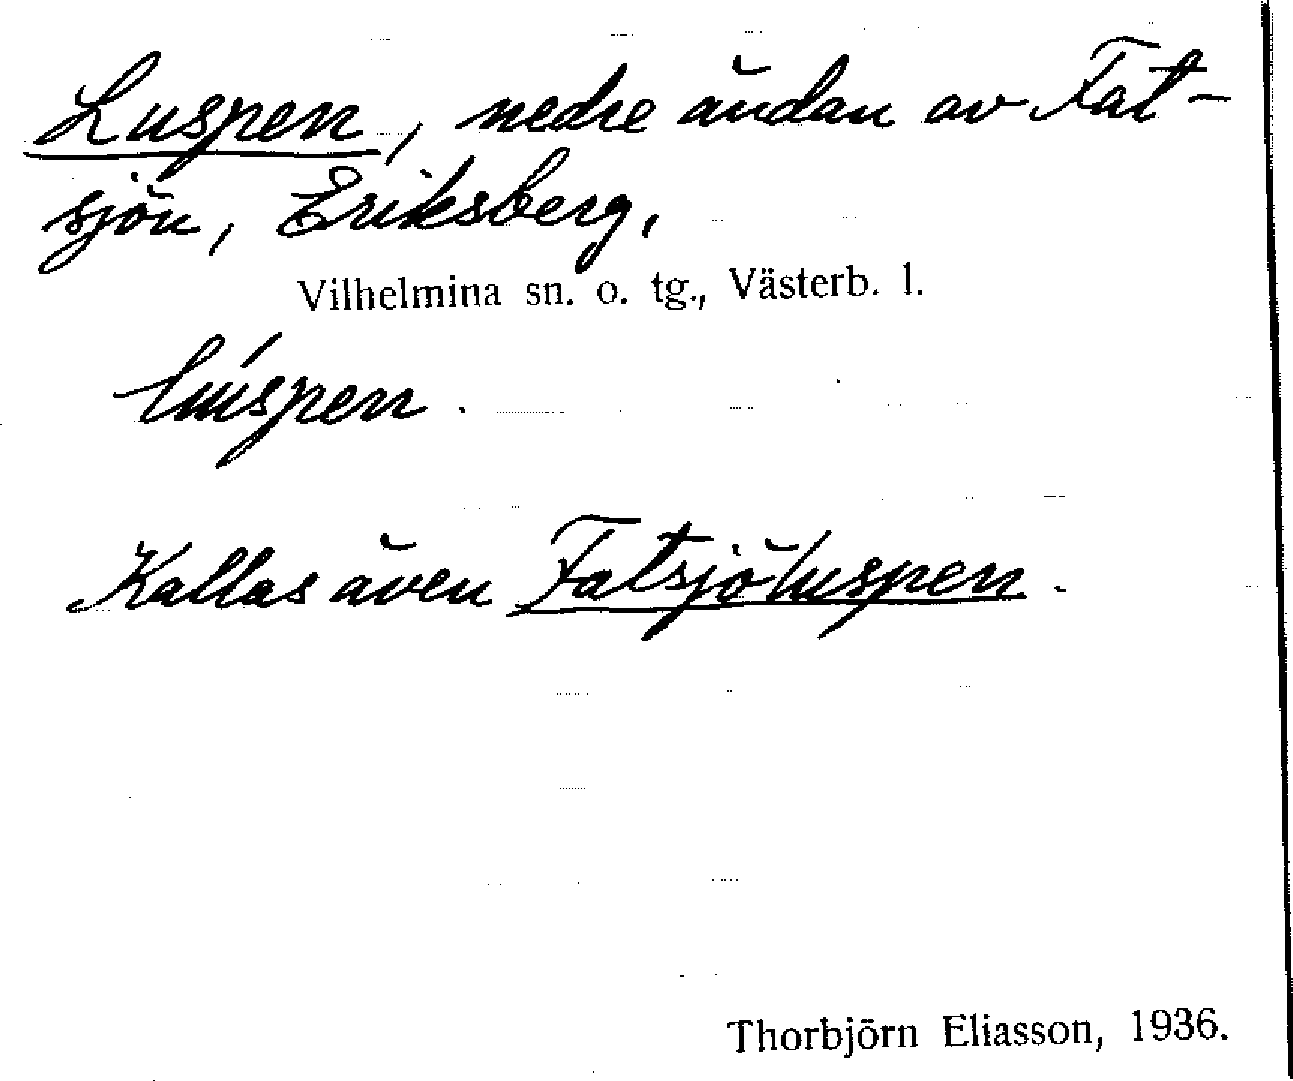 Luspen, nedre ändan av Fat-
sjön, Eriksberg,
Vilhelmina sn. o. tg., Västerb. l.
lúspen.
Kallas även Fatsjöluspen.
Thorbjörn Eliasson, 1936.